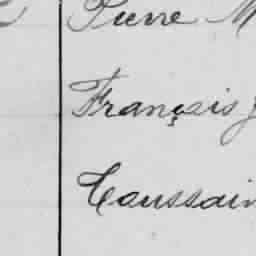 Pierre M
François J
Toussain